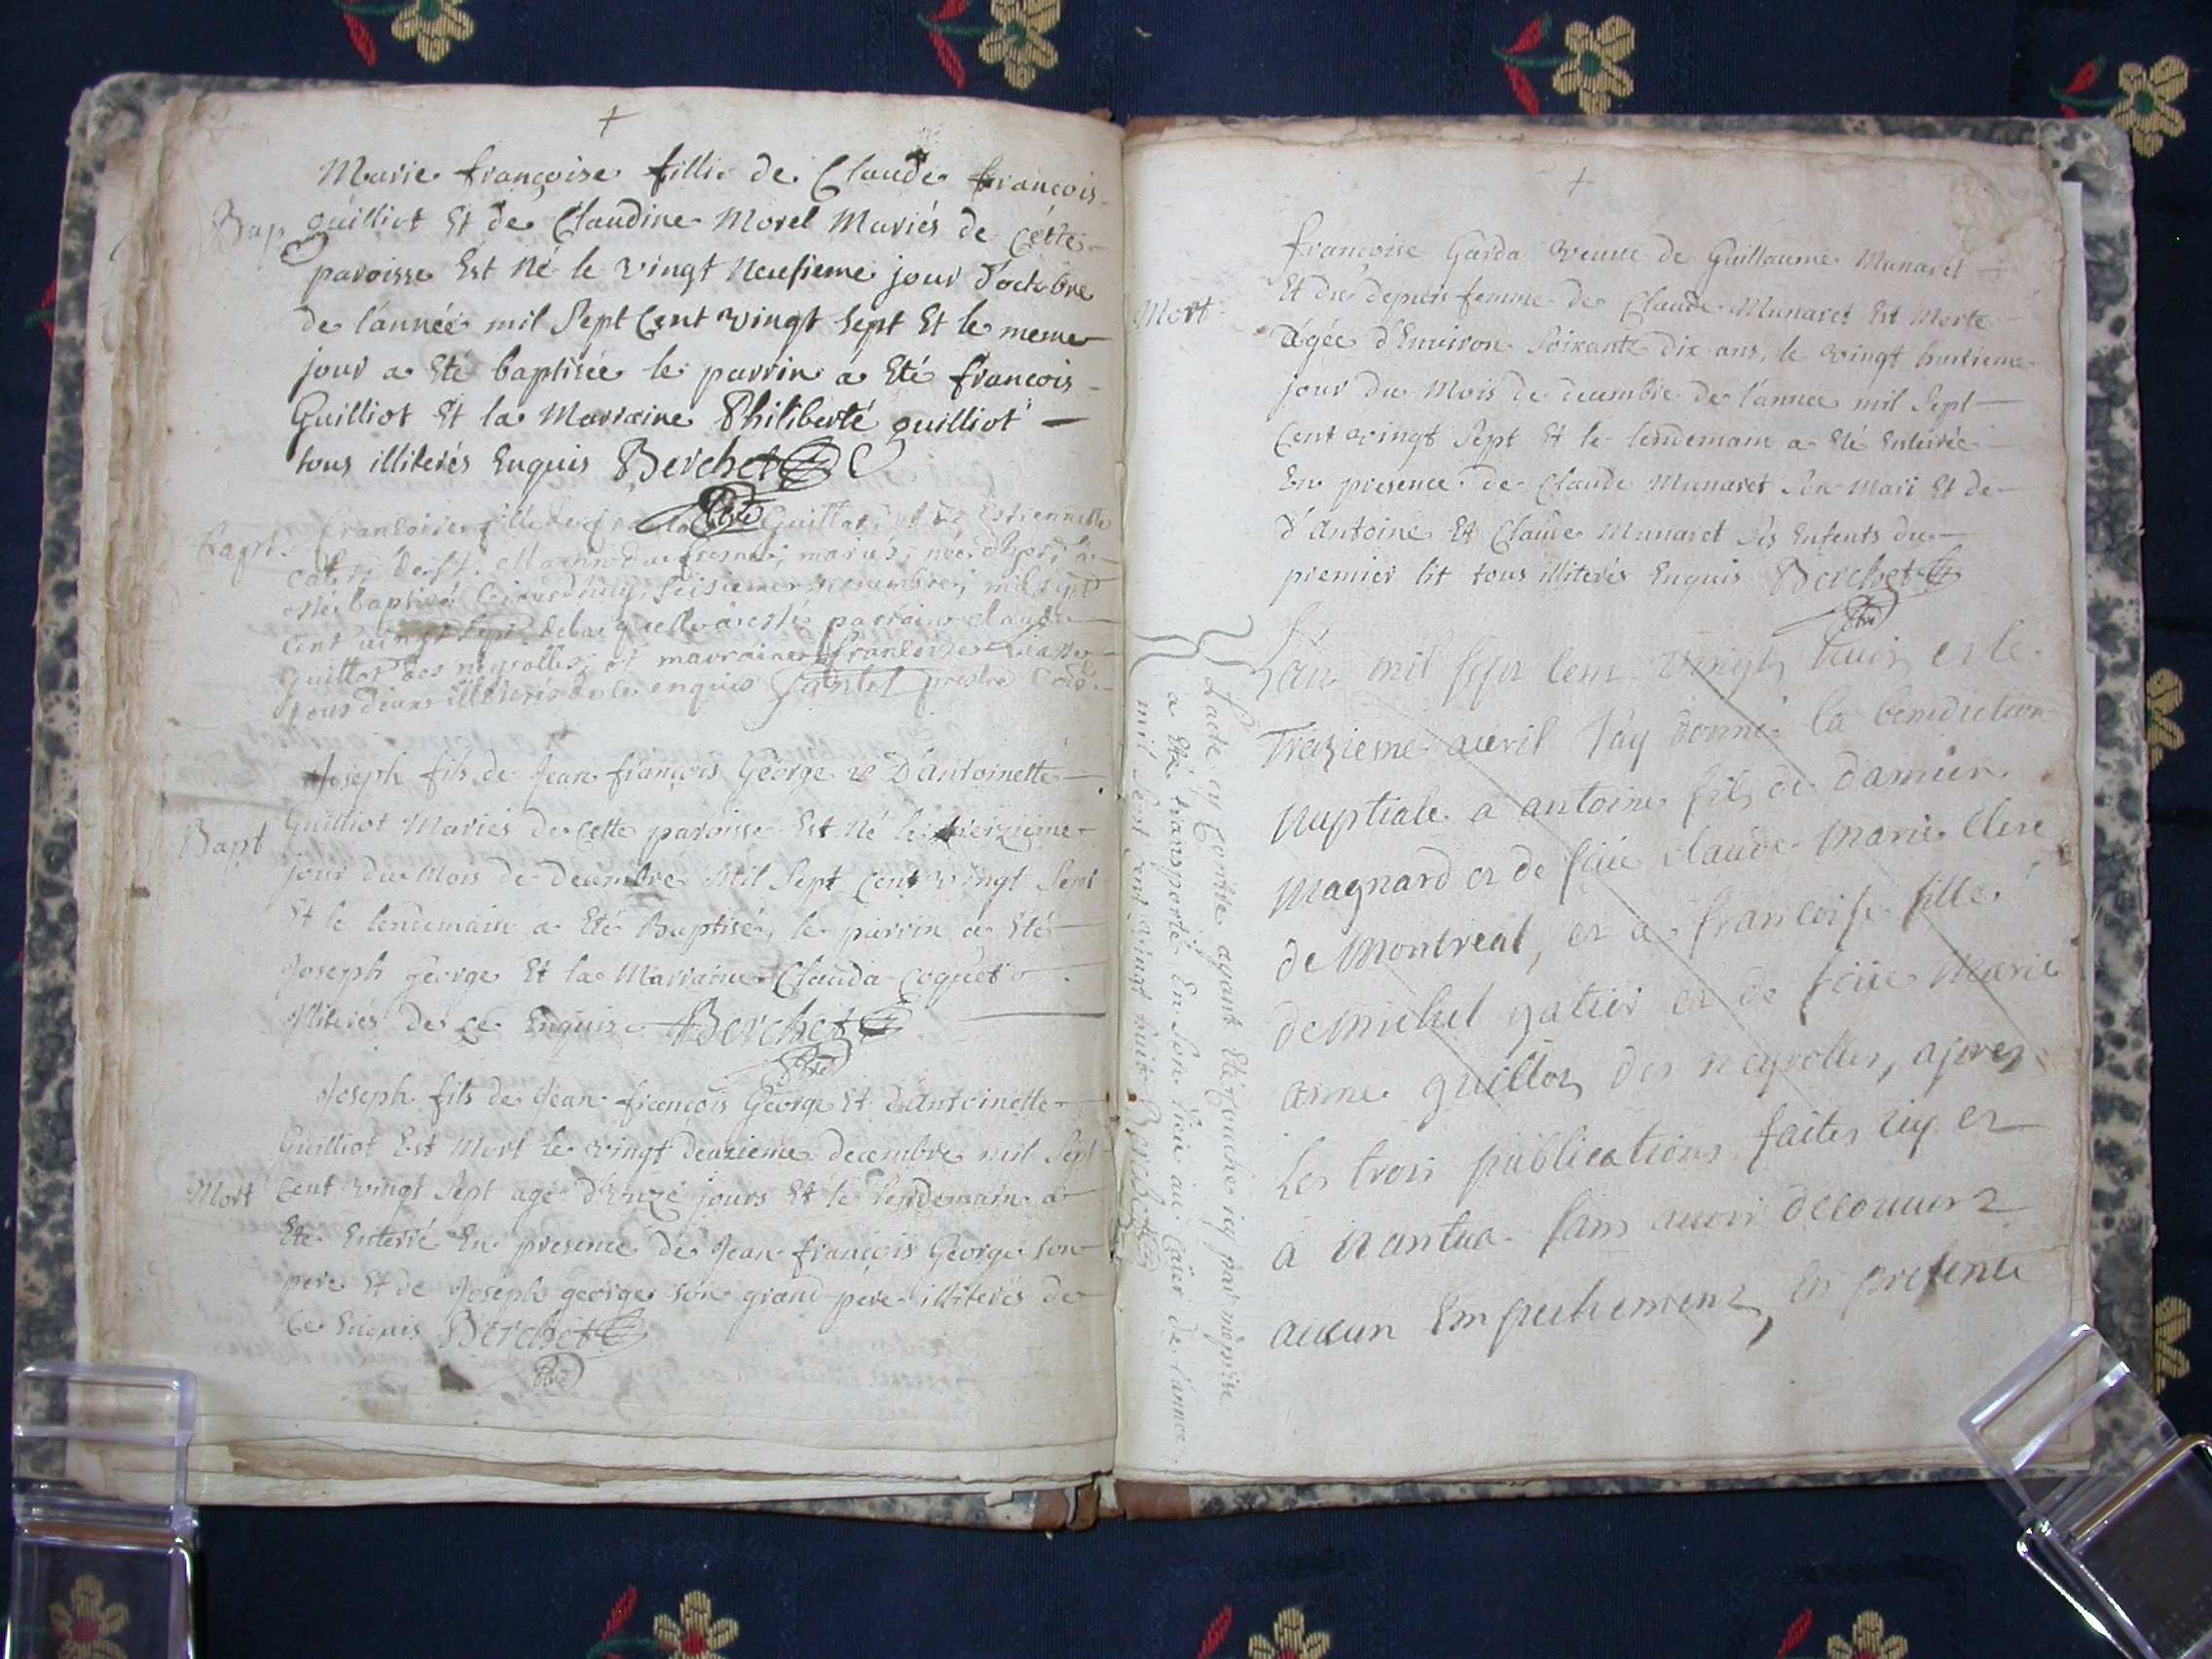 +
Marie françoise fillie de Claude françois
Bap guilliot Et de Claudine Morel Mariés de Cétte
paroisse Est Né le vingt Neufieme jour d'octobre
de l'année mil Sept Cent vingt Sept Et le meme
jour a Eté baptisée le parrin a Eté françois
Guilliot Et la Marraine Philiberte guilliot
tous illiterés Enquis Berchet
Ptre
Bapt. francoise fille de Guillot, et de Estiennette
mariés, née d'hyer, a
esté baptisé ce jourdhuy, seisieme novembre, mil sept
cent uingt sept de laquelle a esté parrain claude
guillot des neyrolles, et marraine francoise
tous deux illiterés de ce enquis prestre
Joseph fils de Jean françois George et D'antoinette
Guilliot Mariés de cette paroisse Est Né le
Bapt
jour du Mois de Decembre Mil Sept Cent vingt Sept
Et le lendemain a Eté Baptisé, le parrin a Eté
Joseph george Et la Marraine Clauda coquet
illiterés de ce Enquis Berchet
Ptre
Joseph fils de Jean françois George Et d'antoinette
Guilliot Est Mort le vingt deuzieme decembre mil Sept
Mort Cent vingt Sept agé d'onze jours Et le lendemain a
Eté Enterré En presence de Jean françois George son
pere Et de Joseph george son grand pere illiterés de
Ce Enquis Berchet
Ptre
+
françoise Garda veuve de Guillaume Munaret
Et du depuis femme de Claude Munaret Est Morte
Mort
agée d'Environ Soixante dix ans, le vingt huitieme
jour du Mois de decembre de l'annee mil Sept
Cent vingt Sept Et le lendemain a Eté Enterrée
En presence de Claude Munaret Son Mari Et de
d'Antoine Et Claude Munaret Ses Enfents du
premier lit tous illiterés Enquis Berchet
Ptre
L'an mil sept cent vingt huit et le
Trazieme auril J'ay donné la benediction
nuptiale a antoine fils de damien
Magnard et de feüe claude Marie Clere
de Montreal, et a francoise fille
de michel gatier et de feüe Marie
anne guillot des neyrolles, apres
les trois publications faites icy et
a nantua sans auoir decouuert
aucun Empechement, en presence
L'acte cy Contre ayant Eté couché icy par méprise
a Eté transporté En Son lieu au caïer de l'année
mil Sept Cent vingt huit Berchet